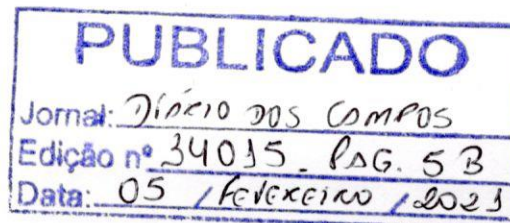 PUBLICADO
Jornal: DIÁRIO DOS CAMPOS
Edição nº 34015 PAG. 5B
Data: 05 / FEVEREIRO / 2021